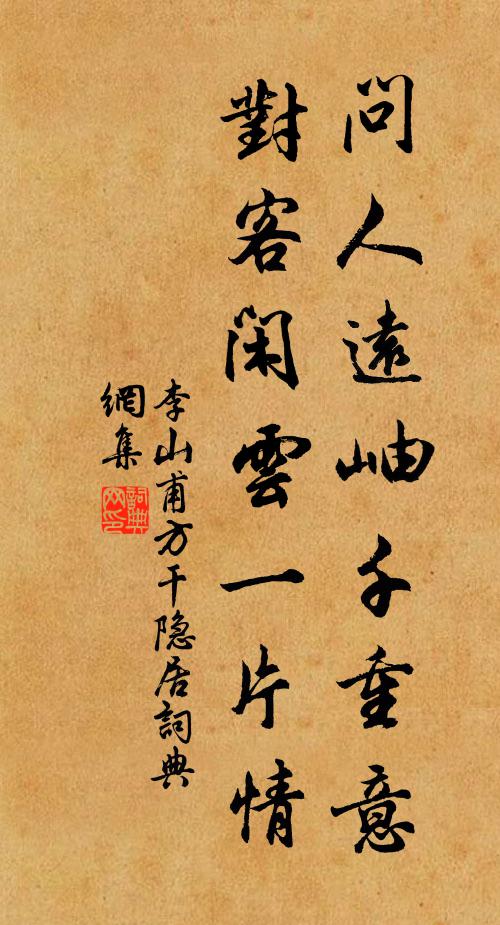 問人遠岫千重意
對客閑雲一片情
李山甫方干隐居詞典
網集
詞典
网印